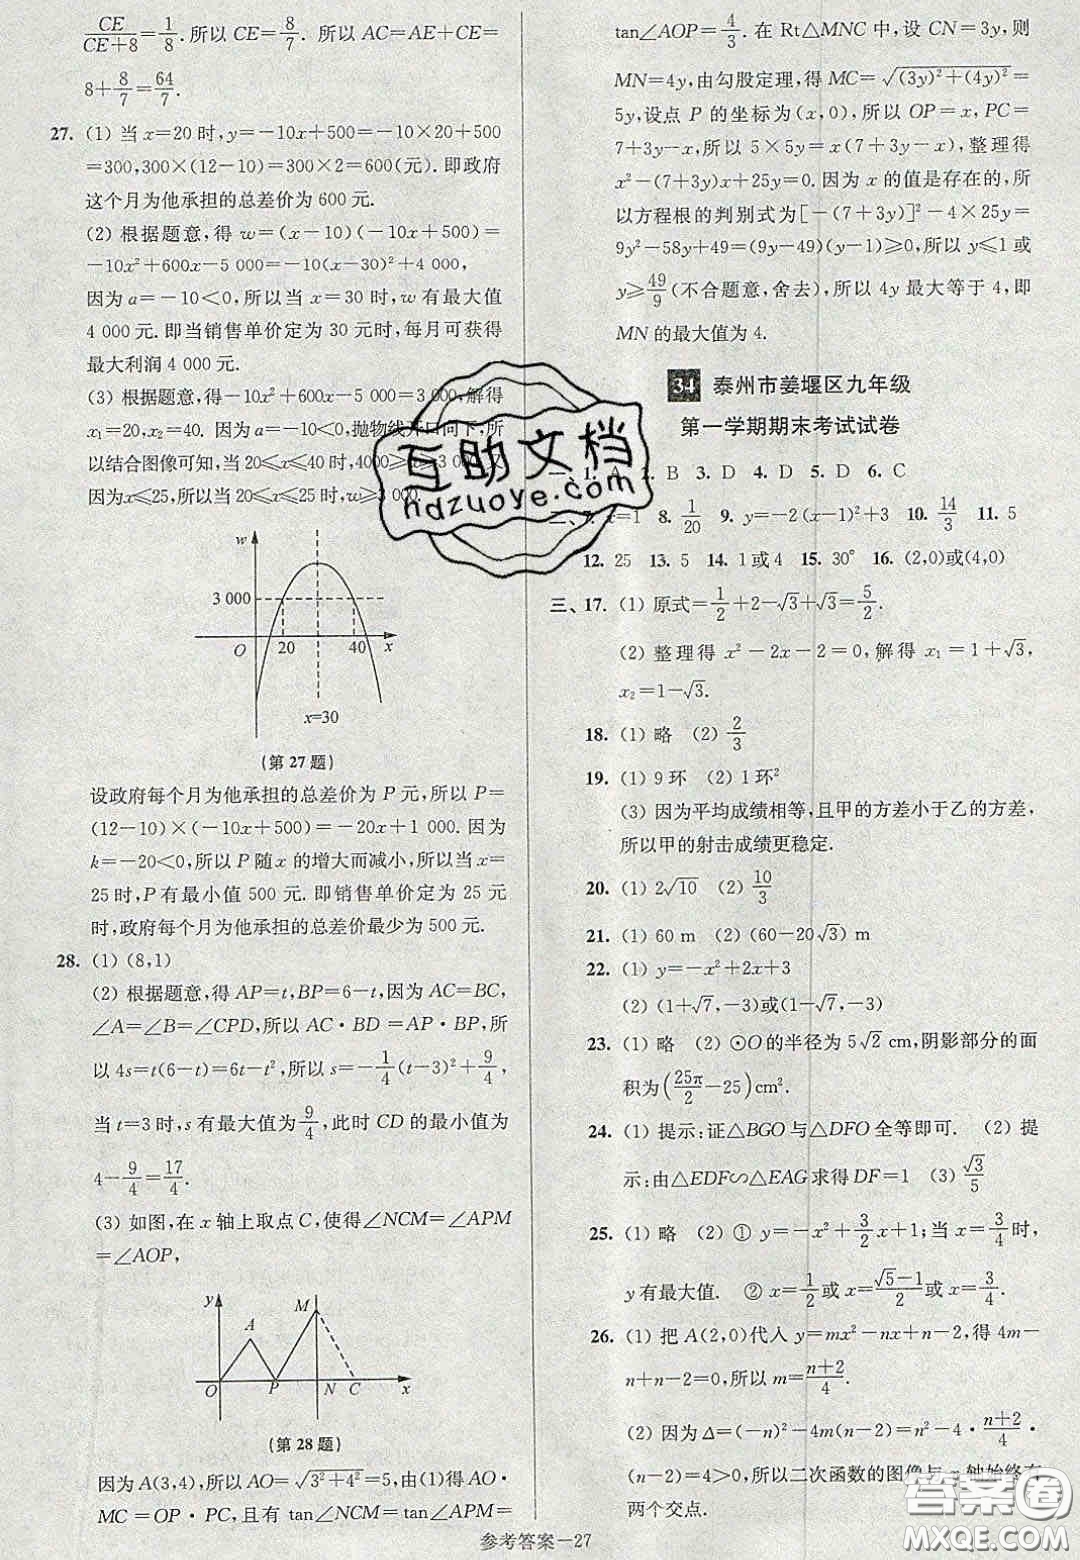 CE/(CE+8)=1/8. 所以 CE=8/7. 所以 AC=AE+CE=
8+8/7=64/7.
27. (1) 当 x=20 时, y=-10x+500=-10×20+500
=300,300×(12-10)=300×2=600(元). 即政府
这个月为他承担的总差价为 600 元.
(2) 根据题意,得 w=(x-10)(-10x+500)=
-10x²+600x-5 000=-10(x-30)²+4 000,
因为 a=-10<0,所以当 x=30 时, w 有最大值
4 000 元. 即当销售单价定为 30 元时,每月可获得
最大利润 4 000 元.
(3) 根据题意,得-10x²+600x-5 000=3 000,解得
x₁=20,x₂=40. 因为a=-10<0,抛物线开口向下,所
以结合图像可知,当 20≤x≤40 时,4000≥w≥3 000. 又
因为x≤25,所以当 20≤x≤25 时,w≥3 000.
w
3 000
O 20 40 x
x=30
(第 27 题)
设政府每个月为他承担的总差价为 P 元,所以 P=
(12-10)×(-10x+500)=-20x+1 000. 因为
k=-20<0,所以 P 随 x 的增大而减小,所以当 x=
25 时, P 有最小值 500 元. 即销售单价定为 25 元
时,政府每个月为他承担的总差价最少为 500 元.
28. (1) (8,1)
(2) 根据题意,得 AP=t,BP=6-t,因为 AC=BC,
∠A=∠B=∠CPD,所以 AC·BD=AP·BP,所
以 4s=t(6-t)=6t-t²,所以 s=-1/4(t-3)²+9/4,
当 t=3 时,s 有最大值为9/4,此时 CD 的最小值为
4-9/4=17/4.
(3) 如图,在 x 轴上取点 C,使得∠NCM=∠APM
=∠AOP,
y
M
A
O P N C x
(第 28 题)
因为 A(3,4),所以 AO=√(3²+4²)=5,由(1)得 AO·
MC=OP·PC,且有 tan∠NCM=tan∠APM=
tan∠AOP=4/3. 在 Rt△MNC 中,设 CN=3y,则
MN=4y,由勾股定理,得 MC=√((3y)²+(4y)²)=
5y,设点 P 的坐标为(x,0),所以 OP=x,PC=
7+3y-x,所以 5×5y=x(7+3y-x),整理得
x²-(7+3y)x+25y=0. 因为 x 的值是存在的,所
以方程根的判别式为[-(7+3y)]²-4×25y=
9y²-58y+49=(9y-49)(y-1)≥0,所以 y≤1 或
y≥49/9(不合题意,舍去),所以 4y 最大等于 4,即
MN 的最大值为 4.
34 泰州市姜堰区九年级
第一学期期末考试试卷
一、1. A 2. B 3. D 4. D 5. D 6. C
二、7. x=1 8. 1/20 9. y=-2(x-1)²+3 10. 14/3 11. 5
12. 25 13. 5 14. 1或4 15. 30° 16. (2,0)或(4,0)
三、17. (1) 原式=1/2+2-√3+√3=5/2.
(2) 整理得 x²-2x-2=0,解得 x₁=1+√3,
x₂=1-√3.
18. (1) 略 (2) 2/3
19. (1) 9 环 (2) 1 环²
(3) 因为平均成绩相等,且甲的方差小于乙的方差,
所以甲的射击成绩更稳定.
20. (1) 2√10 (2) 10/3
21. (1) 60 m (2) (60-20√3) m
22. (1) y=-x²+2x+3
(2) (1+√7,-3)或(1-√7,-3)
23. (1) 略 (2) ⊙O的半径为 5√2 cm,阴影部分的面
积为(25π/2-25)cm².
24. (1) 提示:证△BGO与△DFO全等即可. (2) 提
示:由△EDF∽△EAG求得 DF=1 (3) √3/5
25. (1) 略 (2) ① y=-x²+3/2x+1;当 x=3/4时,
y 有最大值. ② x=1/2或 x=(√5-1)/2或 x=3/4.
26. (1) 把 A(2,0)代入 y=mx²-nx+n-2,得 4m-
n+n-2=0,所以 m=(n+2)/4.
(2) 因为 Δ=(-n)²-4m(n-2)=n²-4·(n+2)/4·
(n-2)=4>0,所以二次函数的图像与 x 轴始终有
两个交点.
参考答案—27
互助文档
hdzuoye.com
答案圈
MXQE.COM